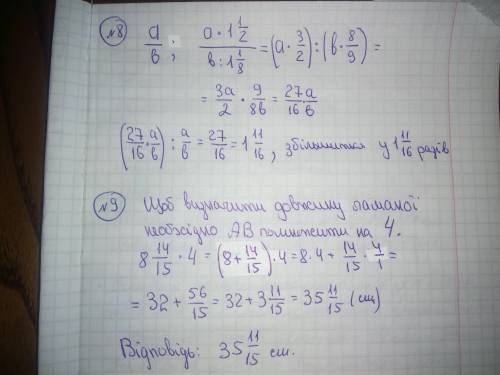 №8 a/b ; (a · 1 1/2)/(b : 1 1/8) = (a · 3/2) : (b · 8/9) =
= 3a/2 · 9/8b = 27/16 · a/b
(27/16 · a/b) : a/b = 27/16 = 1 11/16 , збільшиться у 1 11/16 разів
№9 Щоб визначити довжину ламаної
необхідно AB помножити на 4.
8 14/15 · 4 = (8 + 14/15) · 4 = 8 · 4 + 14/15 · 4/1 =
= 32 + 56/15 = 32 + 3 11/15 = 35 11/15 (см)
Відповідь: 35 11/15 см.